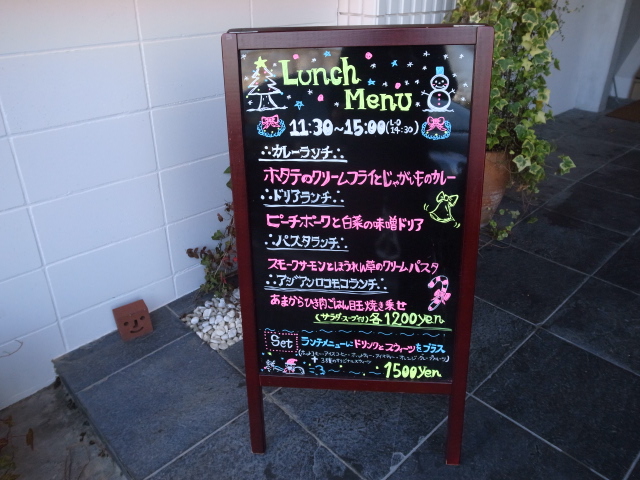 Lunch
Menu
11:30~15:00(L.O 14:30)
∴カレーランチ∴
ホタテのクリームフライとじゃがいものカレー
∴ドリアランチ∴
ピーチポークと白菜の味噌ドリア
∴パスタランチ∴
スモークサーモンとほうれん草のクリームパスタ
∴アジアンロコモコランチ∴
あまからひき肉ごはん目玉焼き乗せ
(サラダ・スープ付)各1200yen
Set ランチメニューにドリンクとスウィーツをプラス
1500yen